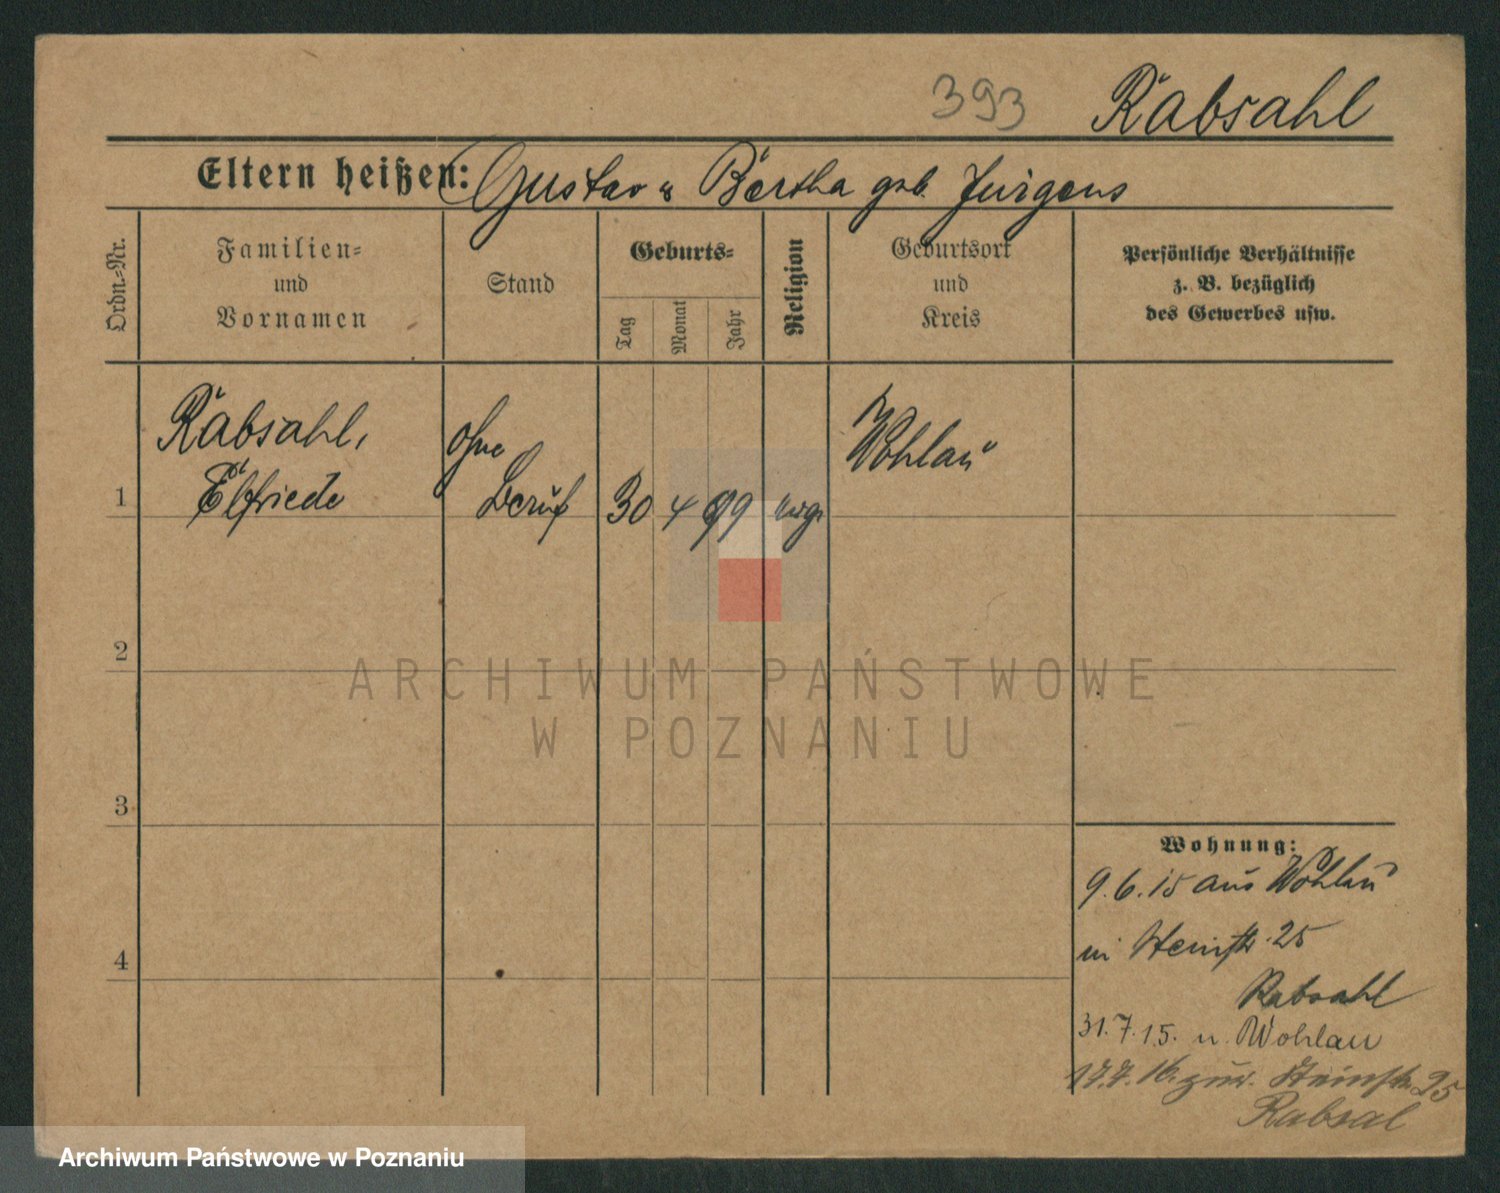 393 Rabsahl
Eltern heißen: Gustav u Bertha geb. Jürgens
Ordn.-Nr.
Familien-
und
Vornamen
Stand
Geburts-
Tag
Monat
Jahr
Religion
Geburtsort
und
Kreis
Persönliche Verhältnisse
z. B. bezüglich
des Gewerbes usw.
Rabsahl,
Elfriede
ohne
Beruf
1 30 4 99 evgl
Wohlau
2
3
4
ARCHIWUM PAŃSTWOWE
W POZNANIU
Wohnung:
9.6.15 aus Wohlau
in Steinstr. 25
Rabsahl
31.7.15. n. Wohlau
17.7.16. zur. Steinstr. 25
Rabsal
Archiwum Państwowe w Poznaniu